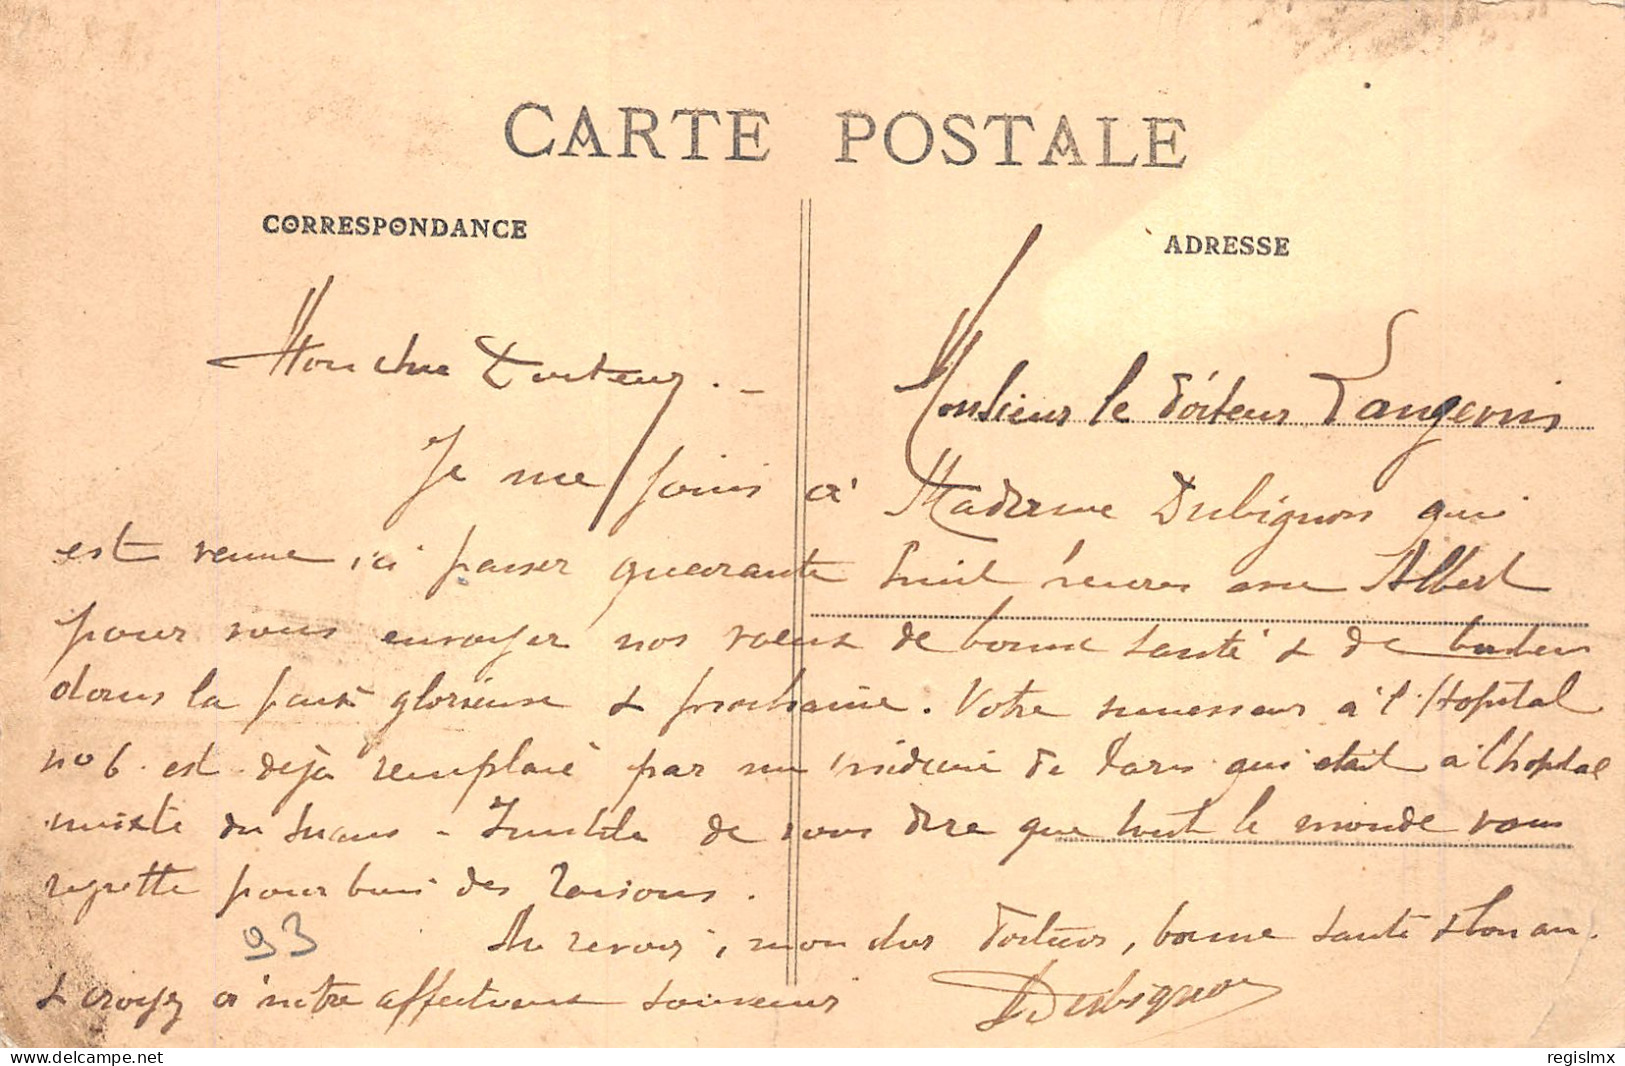 CARTE POSTALE
CORRESPONDANCE
ADRESSE
Monsieur le Docteur Langevin
Mon cher Docteur. –
Je me joins à Madame Dubignon qui
est venue ici passer quarante huit heures avec Albert
pour vous envoyer nos vœux de bonne santé & de
dans la paix glorieuse & prochaine. Votre successeur à l'Hopital
no 6 est déjà remplacé par un médecin de Paris qui était à l'hopital
mixte du Mans – Inutile de vous dire que tout le monde vous
regrette pour bien des raisons.
Au revoir, mon cher Docteur, bonne santé & bon an.
& croyez à notre affectueux souvenir
Dubignon
93
www.delcampe.net
regislmx